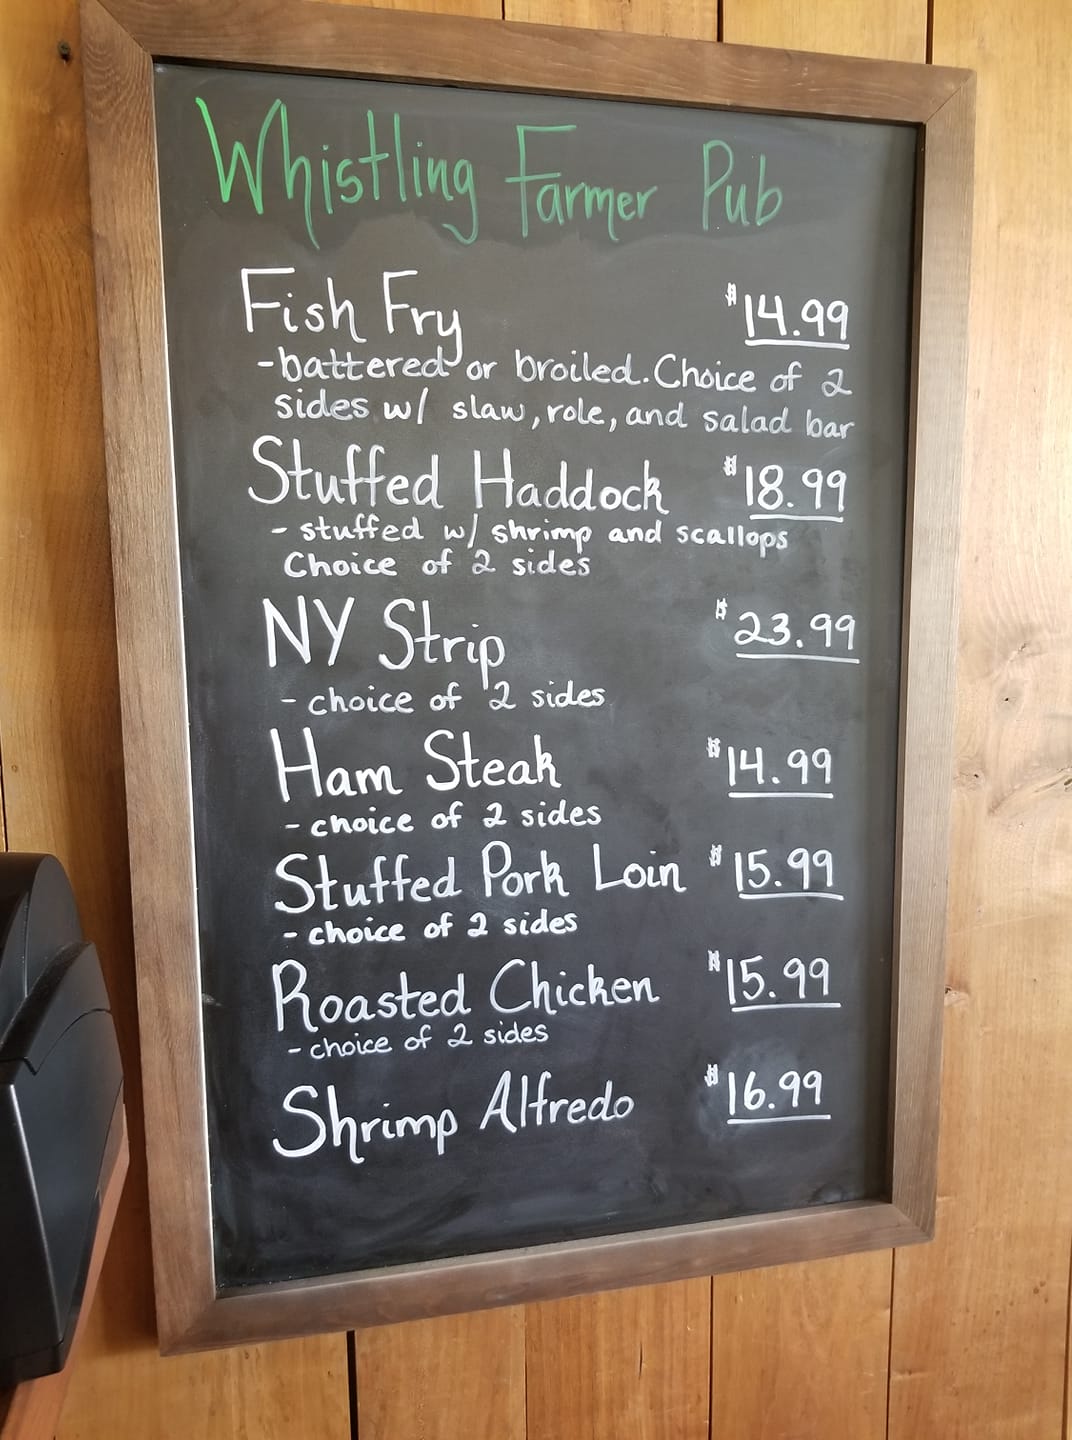 Whistling Farmer Pub
Fish Fry $14.99
- battered or broiled. Choice of 2
sides w/ slaw, role, and salad bar
Stuffed Haddock $18.99
- stuffed w/ shrimp and scallops
Choice of 2 sides
NY Strip $23.99
- choice of 2 sides
Ham Steak $14.99
- choice of 2 sides
Stuffed Pork Loin $15.99
- choice of 2 sides
Roasted Chicken $15.99
- choice of 2 sides
Shrimp Alfredo $16.99